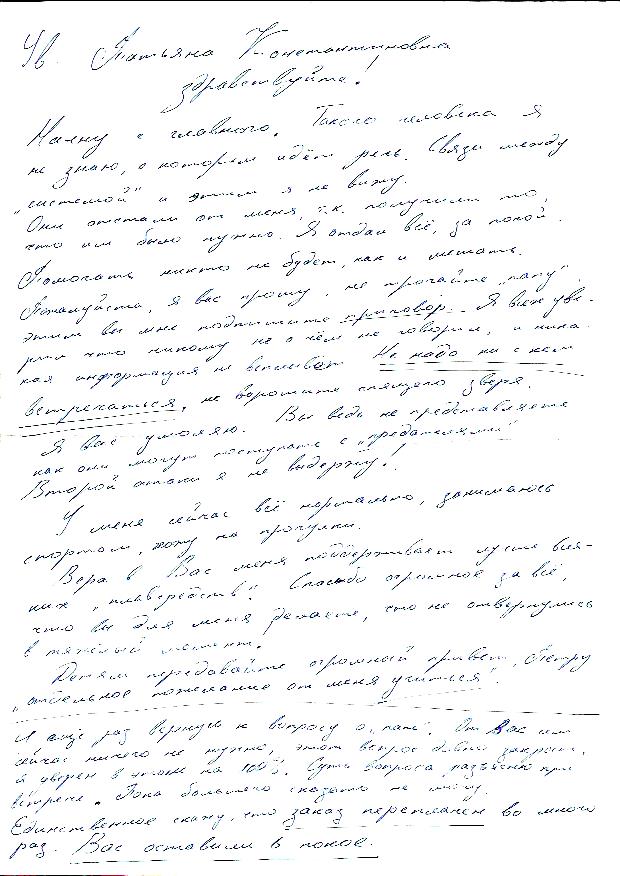 Ув. Татьяна Константиновна
здравствуйте!
Начну с главного. Такого человека я
не знаю, о котором идёт речь. Связи между
"системой" и этим я не вижу.
Они отстали от меня, т.к. получили то,
что им было нужно. Я отдал всё, за покой.
Помогать никто не будет, как и мешать.
Пожалуйста, я вас прошу, не трогайте "папу",
этим вы мне подпишите приговор. Я всех уве-
рил что никому не о чём не говорил, и ника-
кая информация не всплывёт. Не надо ни с кем
встречаться, не ворошите спящего зверя.
Я вас умоляю. Вы ведь не представляете
как они могут поступать с "предателями"
Второй атаки я не выдержу!
У меня сейчас всё нормально, занимаюсь
спортом, хожу на прогулки.
Вера в Вас меня поддерживает лучше вся-
ких Спасибо огромное за всё,
что вы для меня делаете, что не отвернулись
в тяжёлый момент.
Детям передавайте огромный привет, Петру
"отдельное пожелание от меня учиться".
И ещё раз вернусь к вопросу о "папе". От Вас им
сейчас ничего не нужно, этот вопрос давно закрыт.
Я уверен в этом на 100%. Суть вопроса разъясню при
встрече. Пока большего сказать не могу.
Единственное скажу, что заказ переплачен во много
раз. Вас оставили в покое.